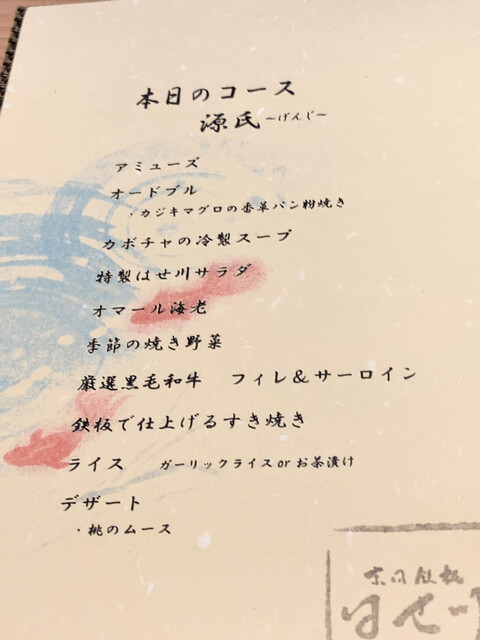 本日のコース
源氏~げんじ~
アミューズ
オードブル
・カジキマグロの香草パン粉焼き
カボチャの冷製スープ
特製はせ川サラダ
オマール海老
季節の焼き野菜
厳選黒毛和牛 フィレ&サーロイン
鉄板で仕上げるすき焼き
ライス ガーリックライスorお茶漬け
デザート
・桃のムース
はせ川